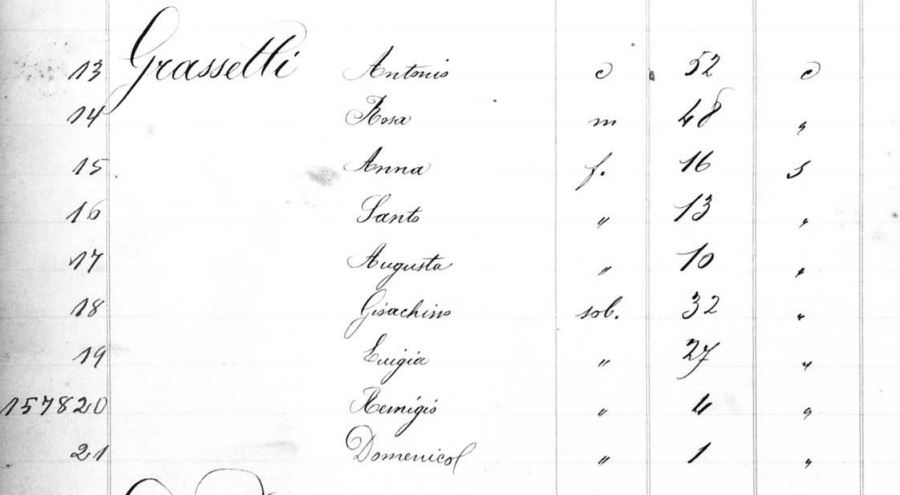 13 Grassetti Antonio c 52 c
14 Rosa m 48 "
15 Anna f. 16 s
16 Santo " 13 "
17 Augusta " 10 "
18 Gioachino sob. 32 "
19 Luigia " 27 "
157820 Remigio " 4 "
21 Domenico " 1 "